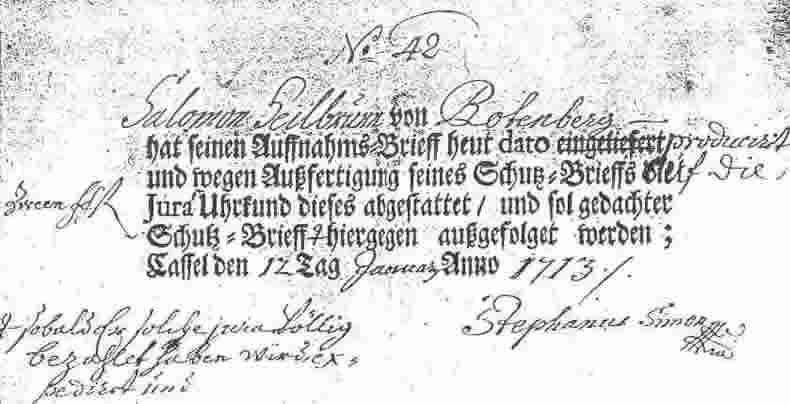 No. 42
Salomon Heilbrun von Rotenberg
hat seinen Auffnahms-Brieff heut dato eingeliefert producirt
und wegen Außfertigung seines Schutz-Brieffs auf die
Jura Uhrkund dieses abgestattet / und sol gedachter
Schutz-Brieff hiergegen außgefolget werden ;
Cassel den 12 Tag January Anno 1713 /.
sobald er solche jura völlig
bezahlet haben wird ex-
pedirt und
Stephanus Simon